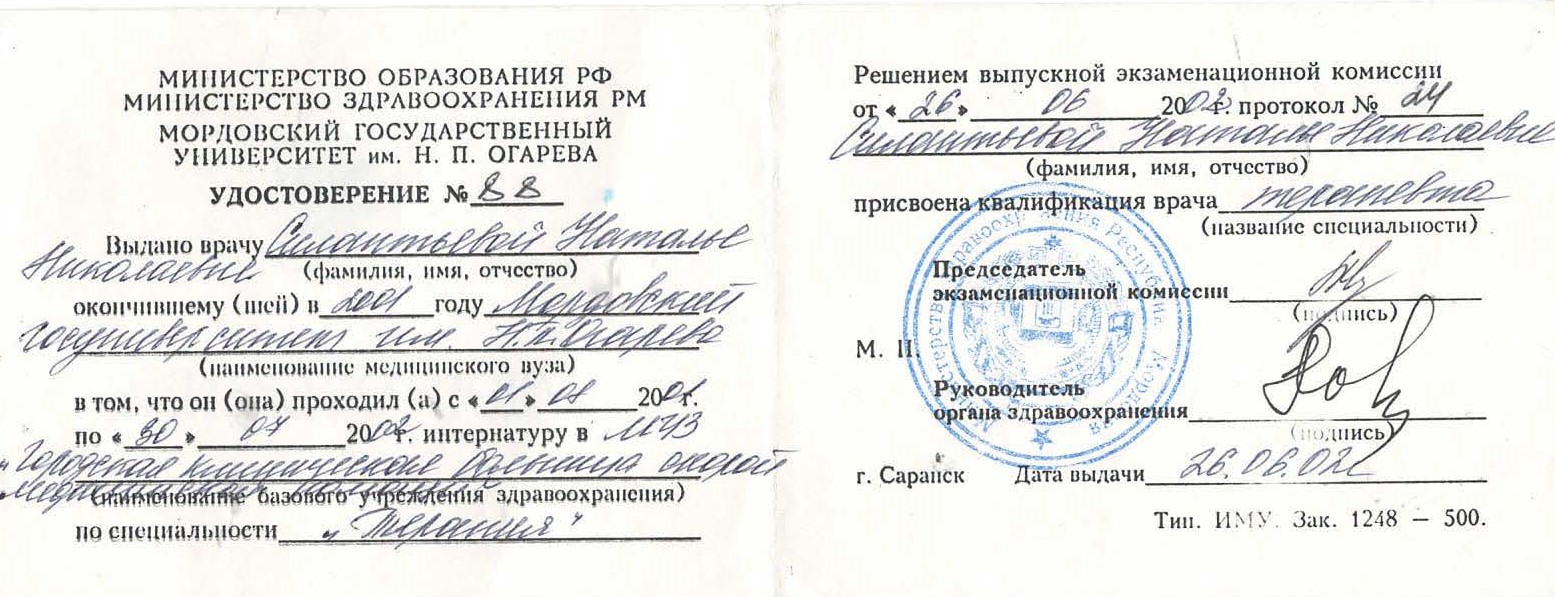 МИНИСТЕРСТВО ОБРАЗОВАНИЯ РФ
МИНИСТЕРСТВО ЗДРАВООХРАНЕНИЯ РМ
МОРДОВСКИЙ ГОСУДАРСТВЕННЫЙ
УНИВЕРСИТЕТ им. Н. П. ОГАРЕВА
УДОСТОВЕРЕНИЕ № 88
Выдано врачу Силантьевой Наталье
Николаевне
(фамилия, имя, отчество)
окончившему (шей) в 2001 году Мордовский
госуниверситет им. Н.П.Огарева
(наименование медицинского вуза)
в том, что он (она) проходил (а) с «01» 08 2001г.
по «30» 07 2002г. интернатуру в МУЗ
"Городская клиническая больница скорой
медицинской помощи"
(наименование базового учреждения здравоохранения)
по специальности „Терапия"
Решением выпускной экзаменационной комиссии
от «26» 06 2002г. протокол № 24
Силантьевой Наталье Николаевне
(фамилия, имя, отчество)
присвоена квалификация врача терапевта
(название специальности)
Председатель
экзаменационной комиссии
(подпись)
М. П.
Руководитель
органа здравоохранения
(подпись)
г. Саранск Дата выдачи 26.06.02г
Тип. ИМУ. Зак. 1248 – 500.